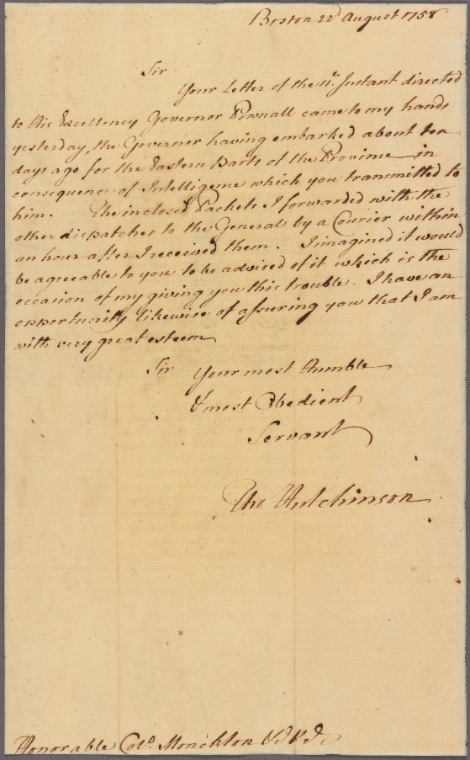 Boston 22d August 1758
Sir
Your Letter of the 11th Instant directed
to His Excellency Governor Pownall came to my hands
yesterday, the Governor having embarked about ten
days ago for the Eastern Parts of the Province in
consequence of Intelligence which you transmitted to
him. The inclosed Packets I forwarded with the
other dispatches to the Generals by a Courier within
an hour after I received them. I imagined it would
be agreeable to you to be advised of it which is the
occasion of my giving you this trouble. I have an
opportunity likewise of assuring you that I am
with very great esteem
Sir Your most Humble
& most Obedient
Servant
Tho Hutchinson
Honorable Colo. Monckton &c &c